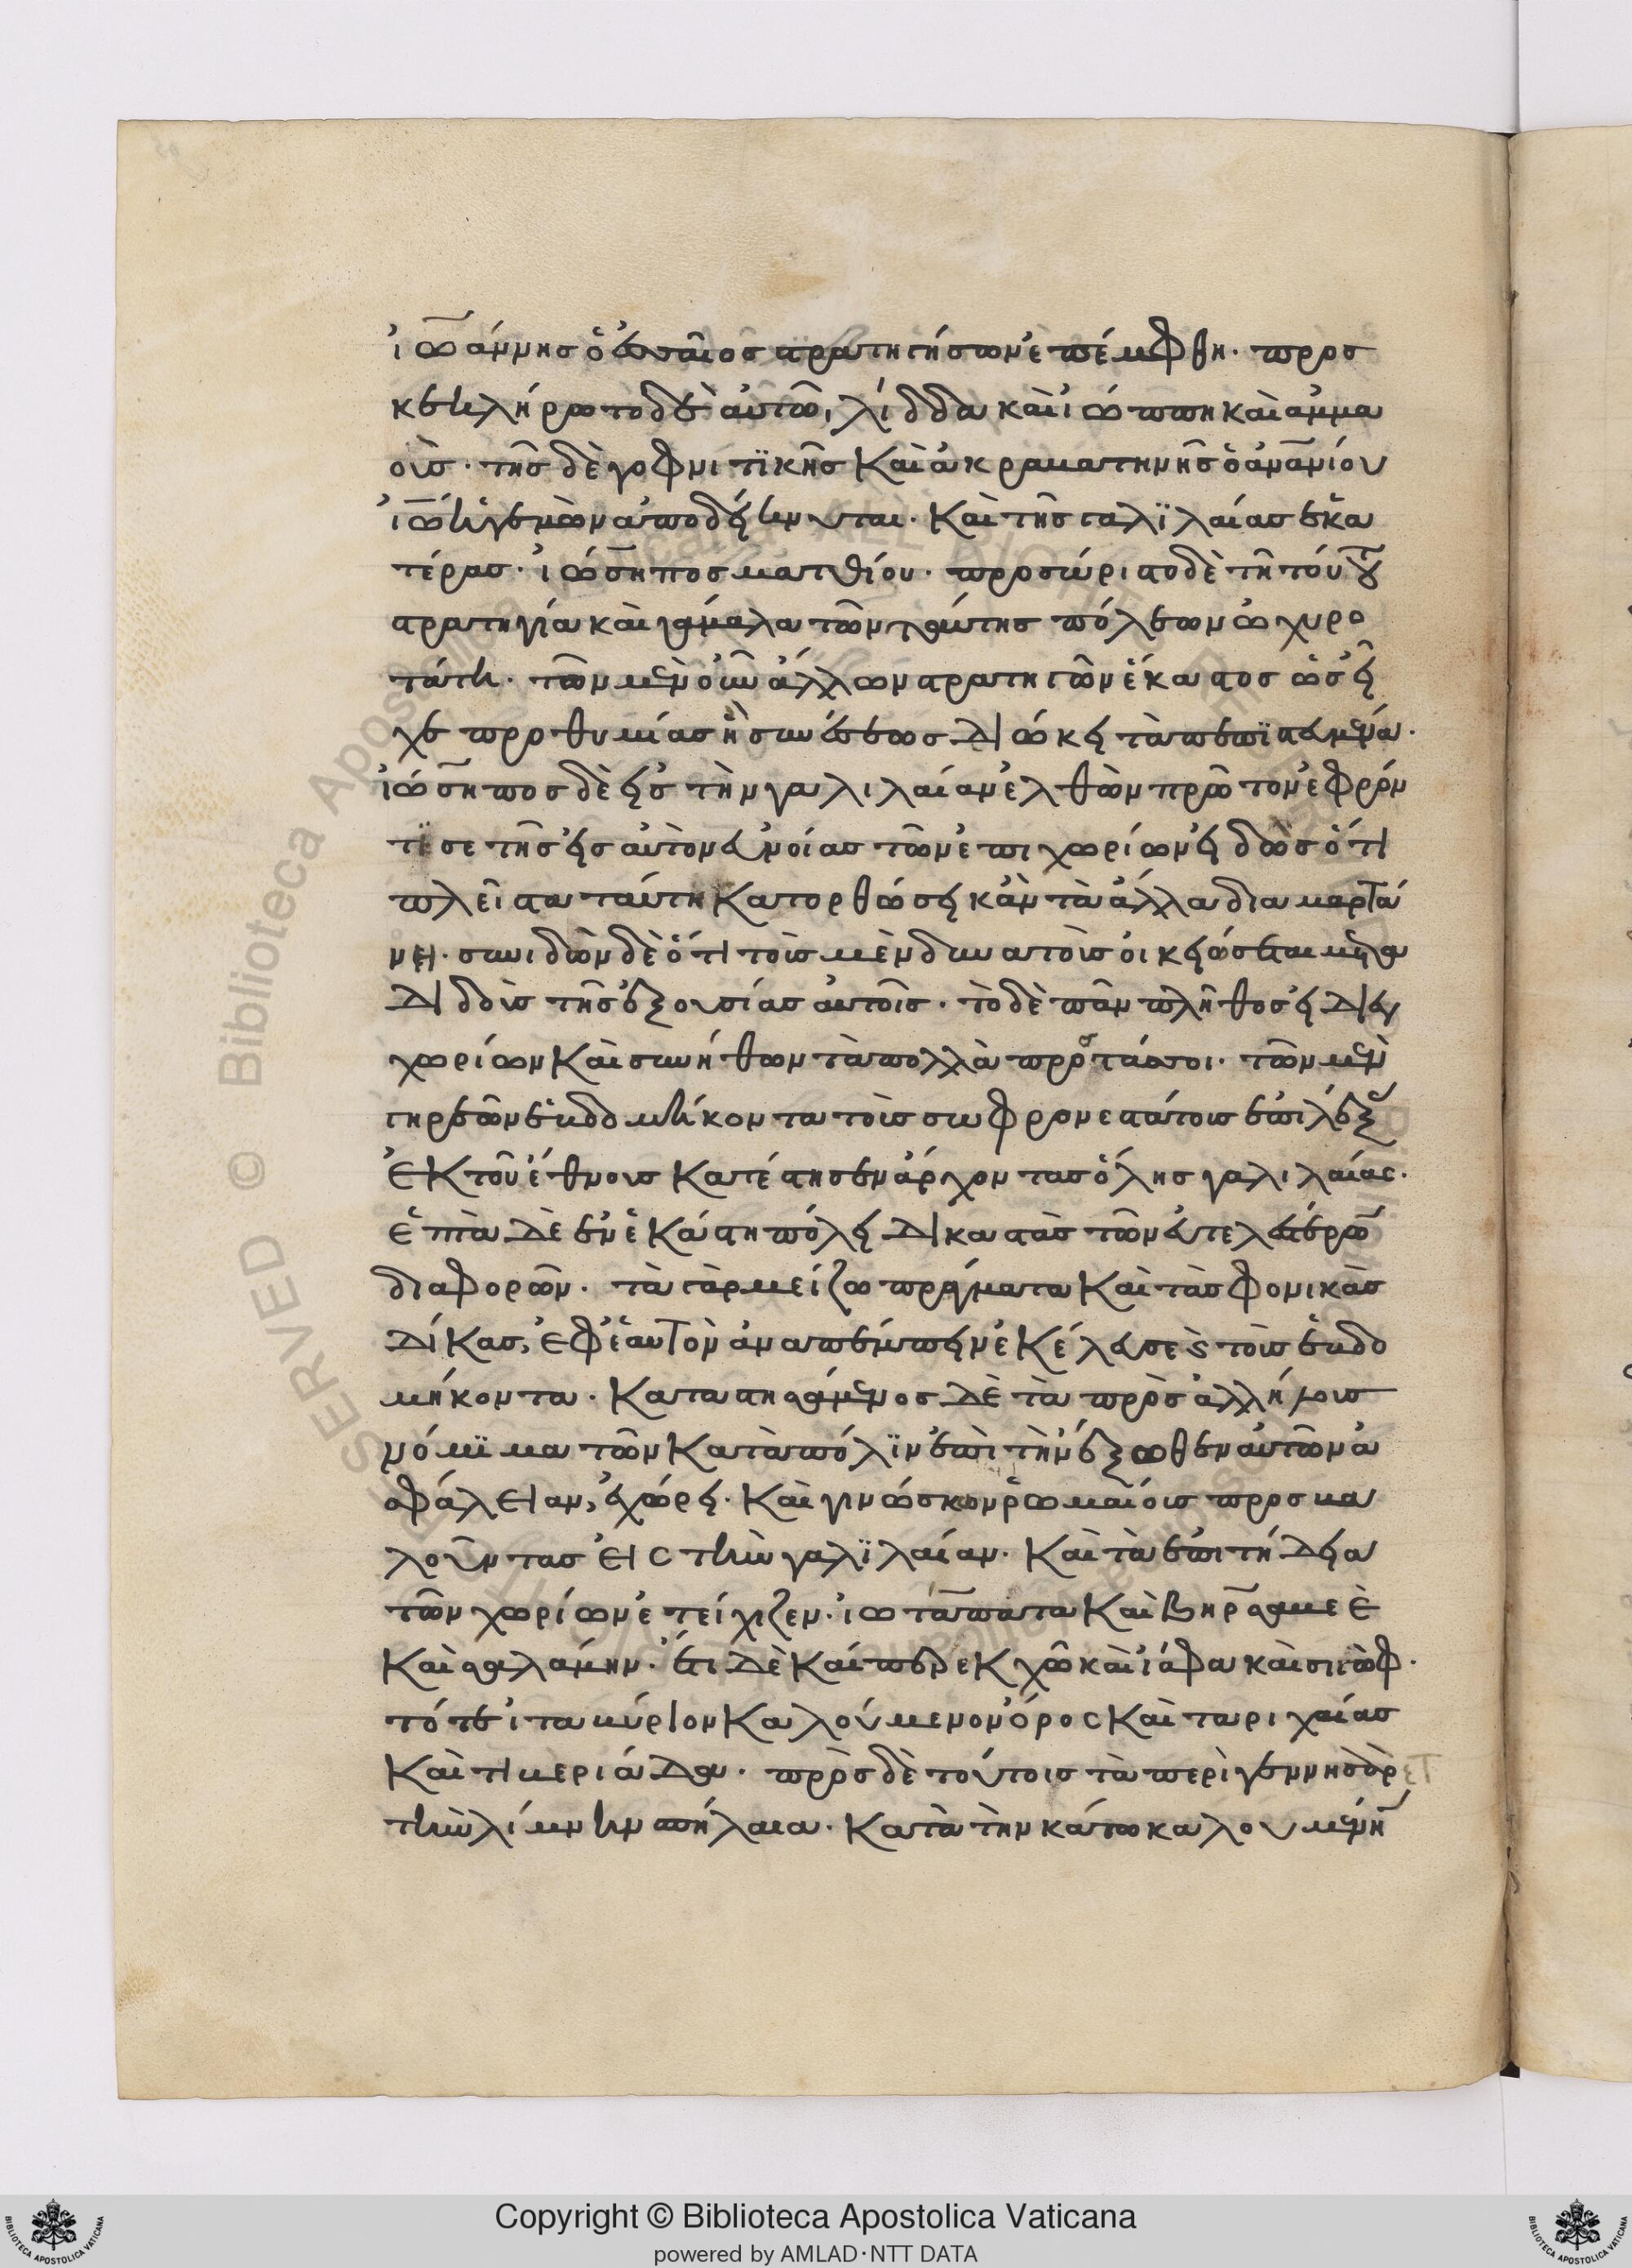 ἰωάννης ὁ ἐσσαῖος στρατηγήσων ἐπέμφθη· προσ
κεκλήρωτο δὲ αὐτῶ, λίδδα καὶ ἰώππη καὶ ἀμμα
οῦς· τῆς δὲ γοφνιτϊκῆς καὶ ἀκραματηνῆς ὁ ἀνανίου
ἰω ἡγεμὼν ἀποδείκνυται· καὶ τῆς γαλϊλαίας ἑκα
τέρας· ἰώσηπος ματθίου· προσώριστο δὲ τῆ τούτου
στρατηγία καὶ γάμαλα τῶν ταύτης πόλεων ὀχυρο
τάτη· τῶν μὲν οὖν ἄλλων στρατηγῶν ἕκαστος ὡς εἶ
χε προθυμίας ἢ συνέσεως διώκει τὰ πεπϊστευμένα·
ἰώσηπος δὲ εἰς τὴν γαλιλαίαν ἐλθὼν πρῶτον ἐφρόν
τϊσε τῆς εἰς αὐτὸν εὐνοίας τῶν ἐπιχωρίων εἰδὼς ὅτι
πλεῖστα ταύτη κατορθώσει κἂν τὰ ἄλλα διαμαρτά
νει· συνιδὼν δὲ ὅτι τοὺς μὲν δυνατοὺς οἰκειώσεται μετα
διδοὺς τῆς ἐξουσίας αὐτοῖς· τὸ δὲ πᾶν πλῆθος εἰ δι' ἐπι
χωρίων καὶ συνήθων τὰ πολλὰ προστάσσοι· τῶν μὲν
γηρεῶν ἑβδομήκοντα τοὺς σωφρονεστάτους ἐπιλέξας
ἐκ τοῦ ἔθνους κατέστησεν ἄρχοντας ὅλης γαλιλαίας·
ἑπτὰ δὲ ἐν ἑκάστη πόλει δικαστὰς τῶν εὐτελεστέρων
διαφορῶν· τὰ γὰρ μείζω πράγματα καὶ τὰς φονικὰς
δίκας, ἐφ' ἑαυτὸν ἀναπέμπειν ἐκέλευσε καὶ τοὺς ἑβδο
μήκοντα· καταστησάμενος δὲ τὰ πρὸς ἀλλήλους
νόμϊμα τῶν κατὰ πόλϊν ἐπὶ τὴν ἔξωθεν αὐτῶν ἀ
σφάλειαν, ἐχώρει· καὶ γινώσκων ῥωμαίους προσκα
λοῦντας εἰς τὴν γαλϊλαίαν· καὶ τὰ ἐπιτήδεια
τῶν χωρίων ἐτείχιζεν· ἰωτάπατα καὶ βηρσαμεὲ
καὶ σαλάμην· ἔτι δὲ καὶ περεκχὼ καὶ ἰάφα καὶ σιγώφ·
τό τε ἰταμύριον καλούμενον ὄρος καὶ ταριχαίας
καὶ τιμεριάδα· πρὸς δὲ τούτοις τὰ περὶ γεννησὰρ
τὴν λίμνην σπήλαια· κατὰ τὴν κάτω καλουμένην
Copyright © Biblioteca Apostolica Vaticana
powered by AMLAD·NTT DATA